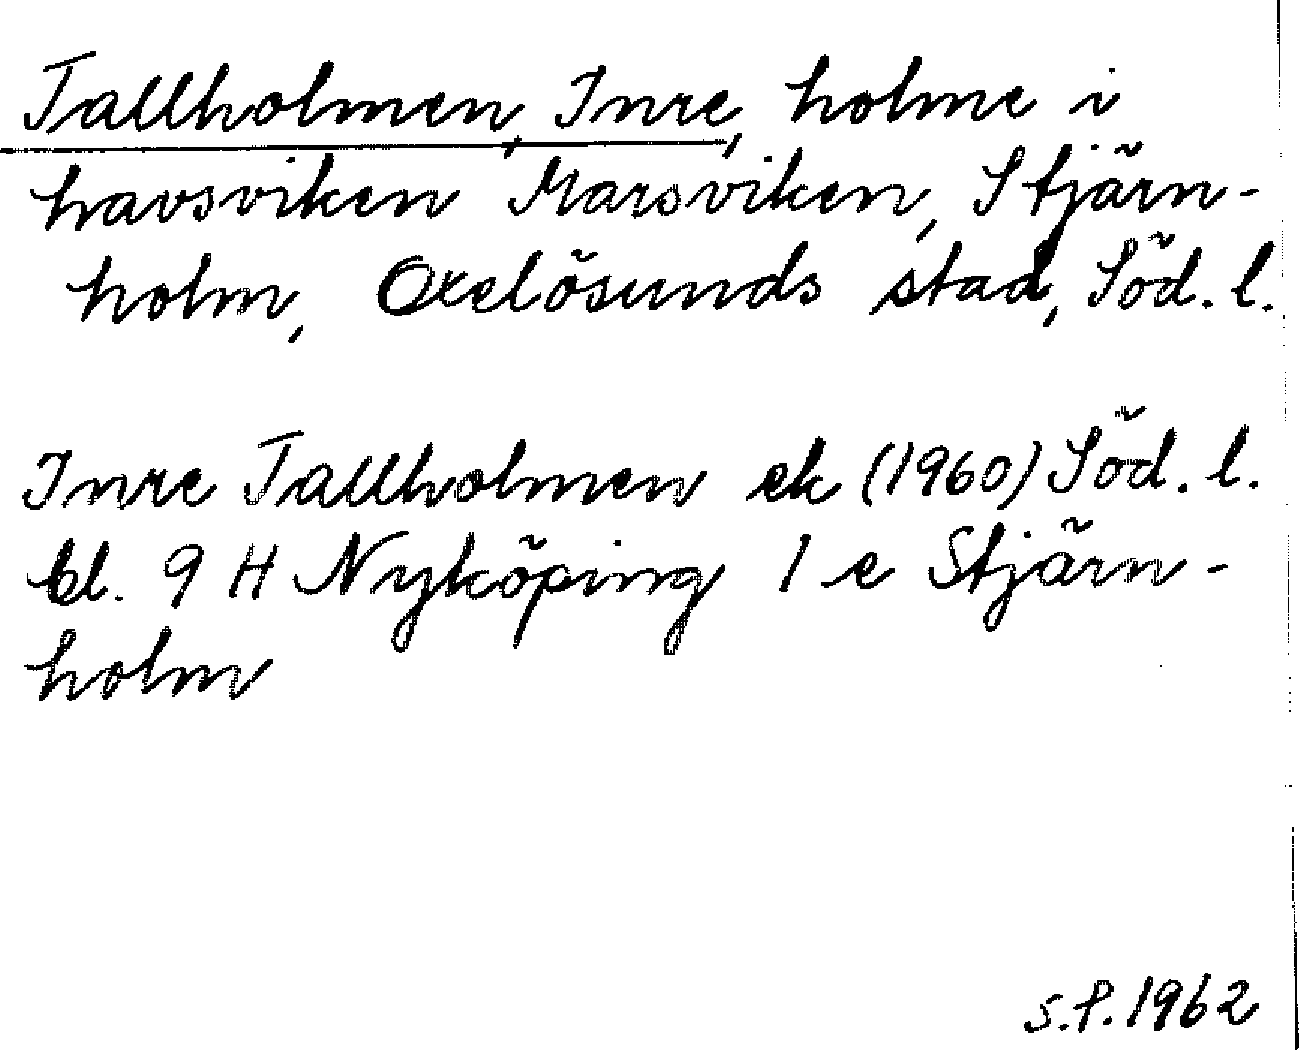 Tallholmen, Inre, holme i
havsviken Marsviken, Stjärn-
holm, Oxelösunds stad, Söd. l.
Inre Tallholmen ek (1960) Söd. l.
bl. 9 H Nyköping 1 e Stjärn-
holm
S.P. 1962